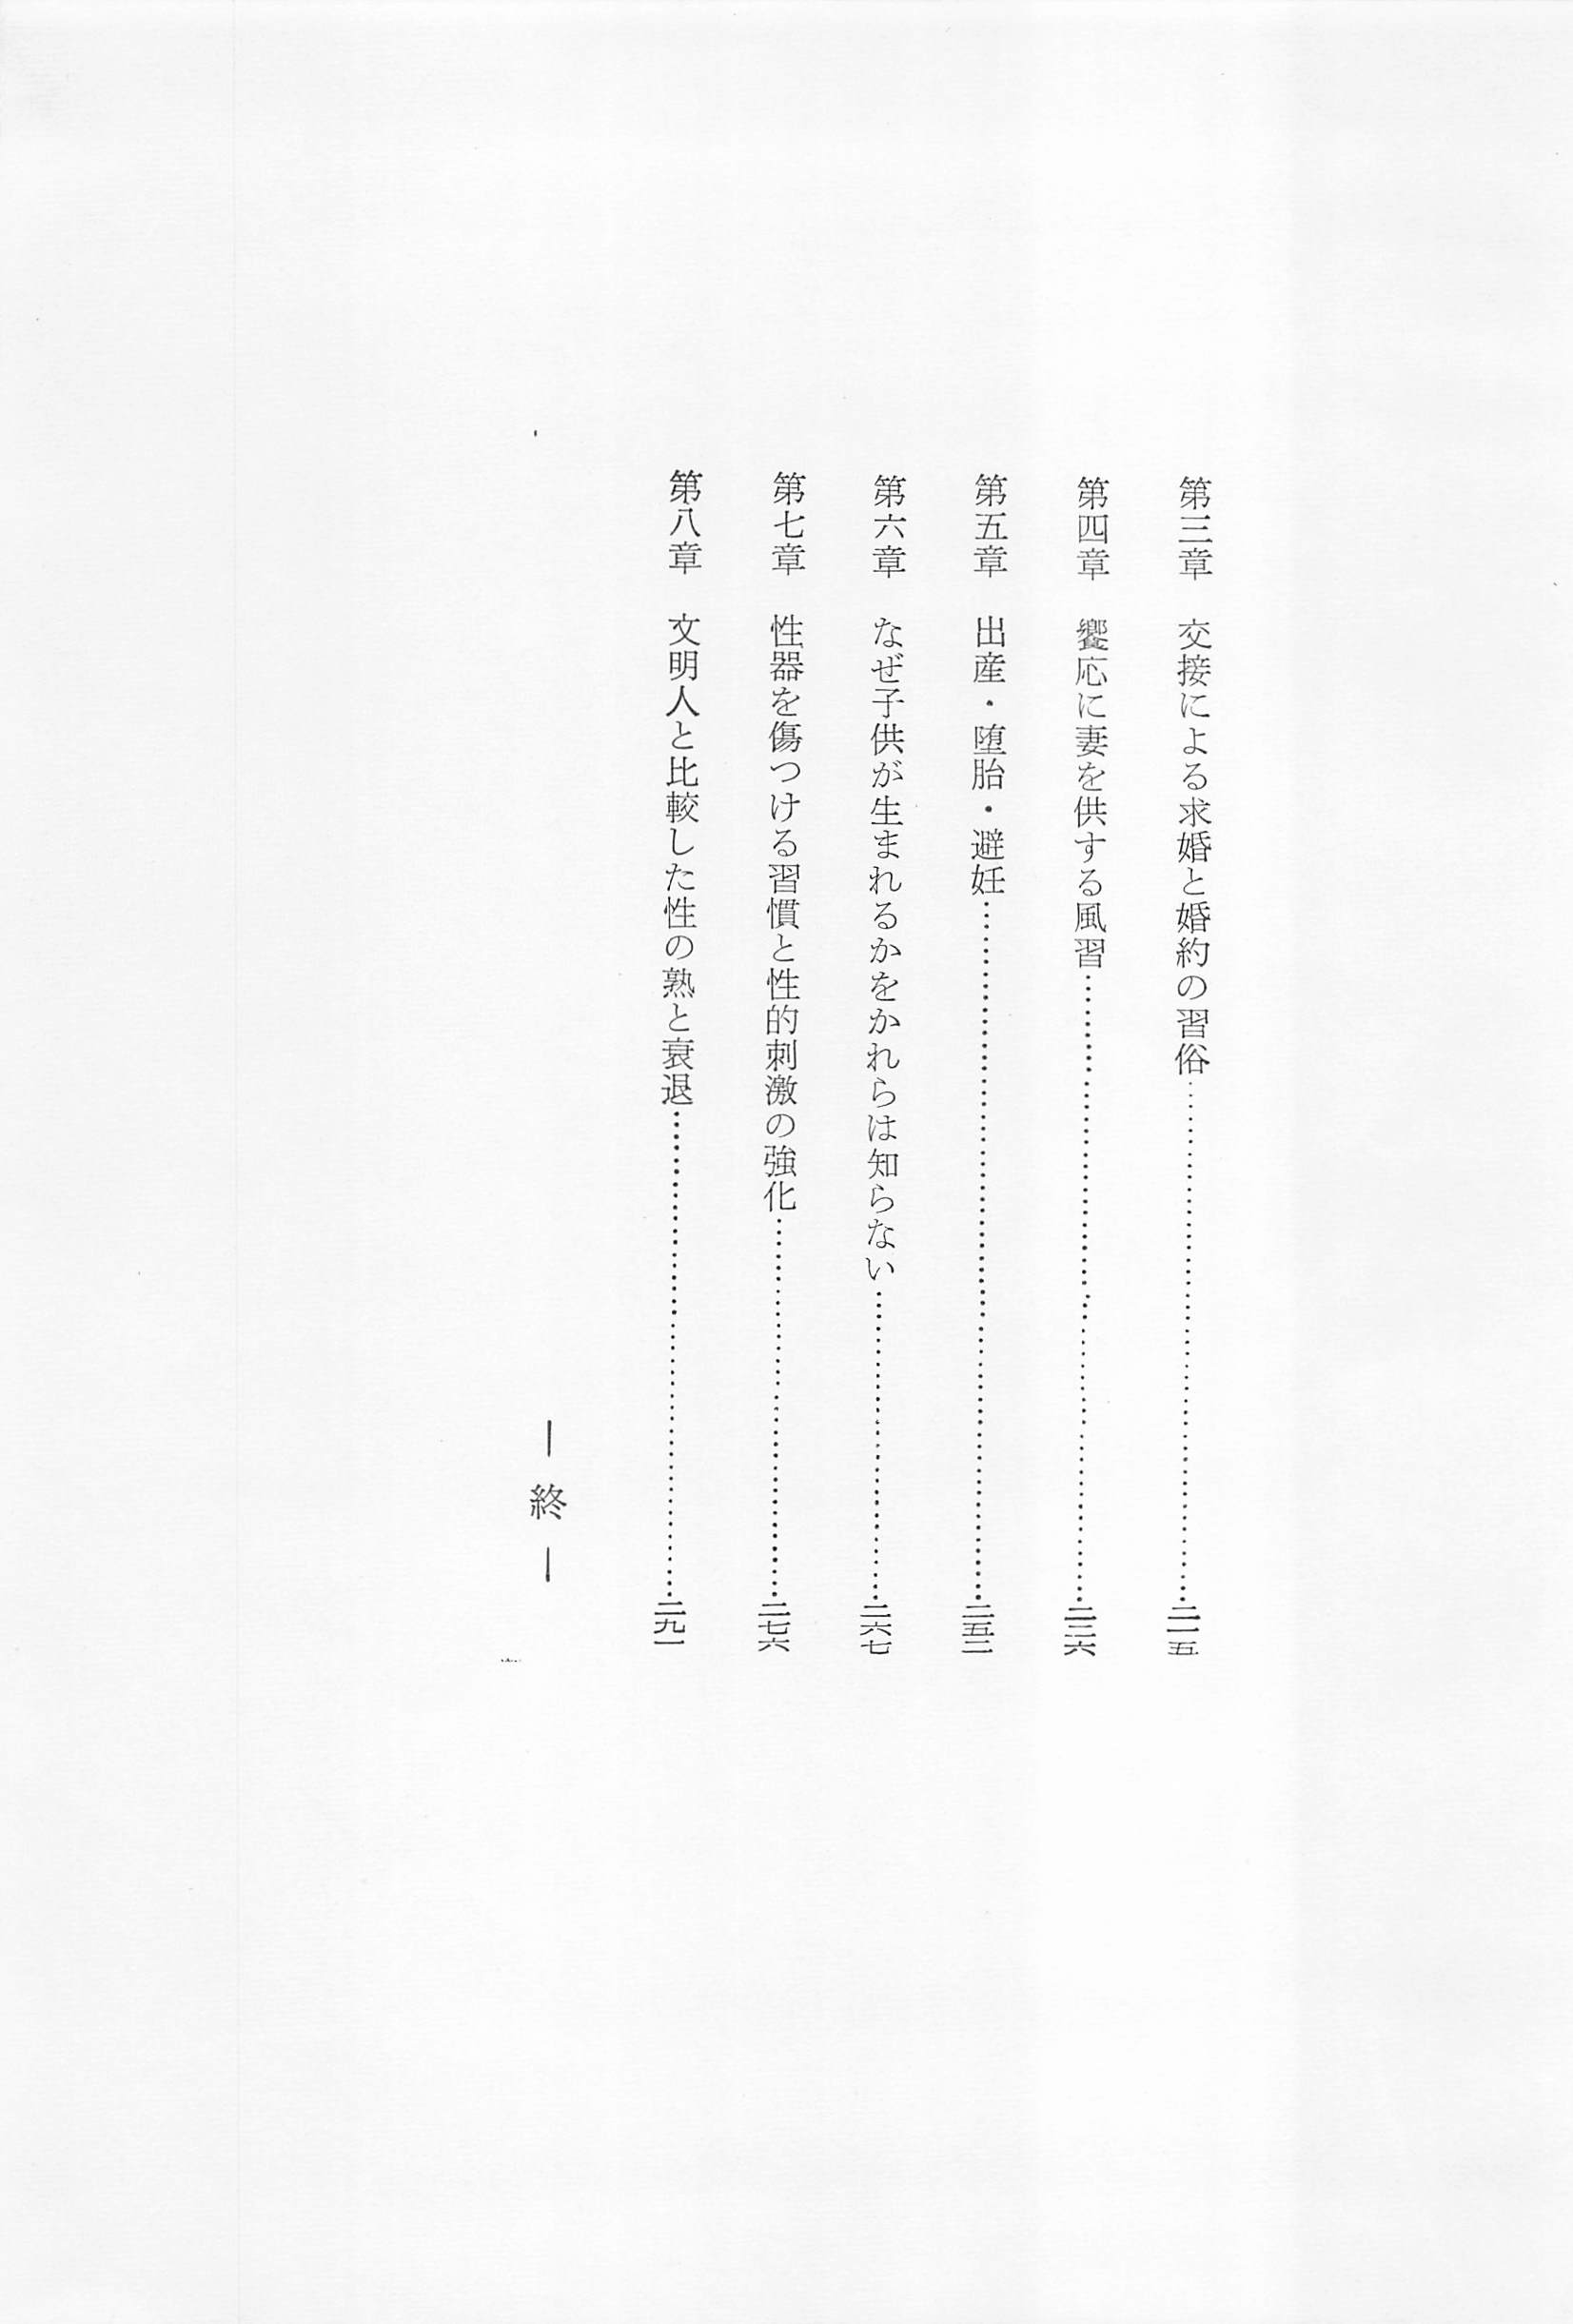 第三章　交接による求婚と婚約の習俗……………………二一五
第四章　饗応に妻を供する風習……………………二三六
第五章　出産・堕胎・避妊……………………二五二
第六章　なぜ子供が生まれるかをかれらは知らない……………………二六七
第七章　性器を傷つける習慣と性的刺激の強化……………………二七六
第八章　文明人と比較した性の熟と衰退……………………二九一
— 終 —